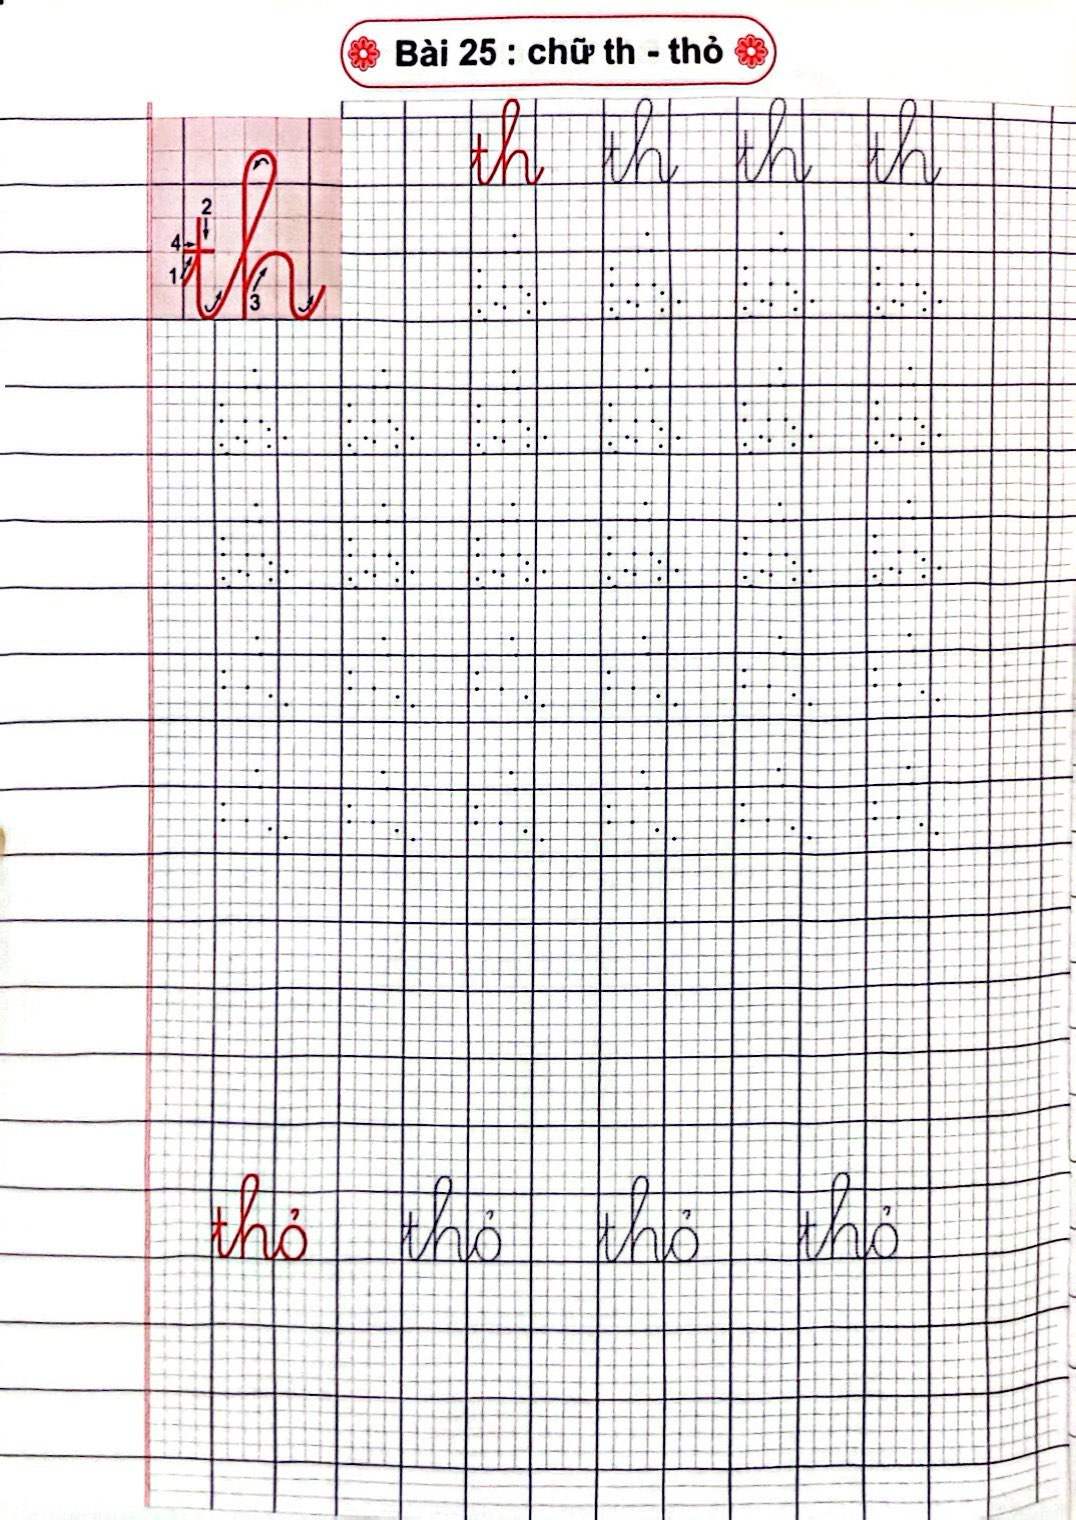 Bài 25 : chữ th - thỏ
th th th th
2
4
1
3
th
thỏ thỏ thỏ thỏ